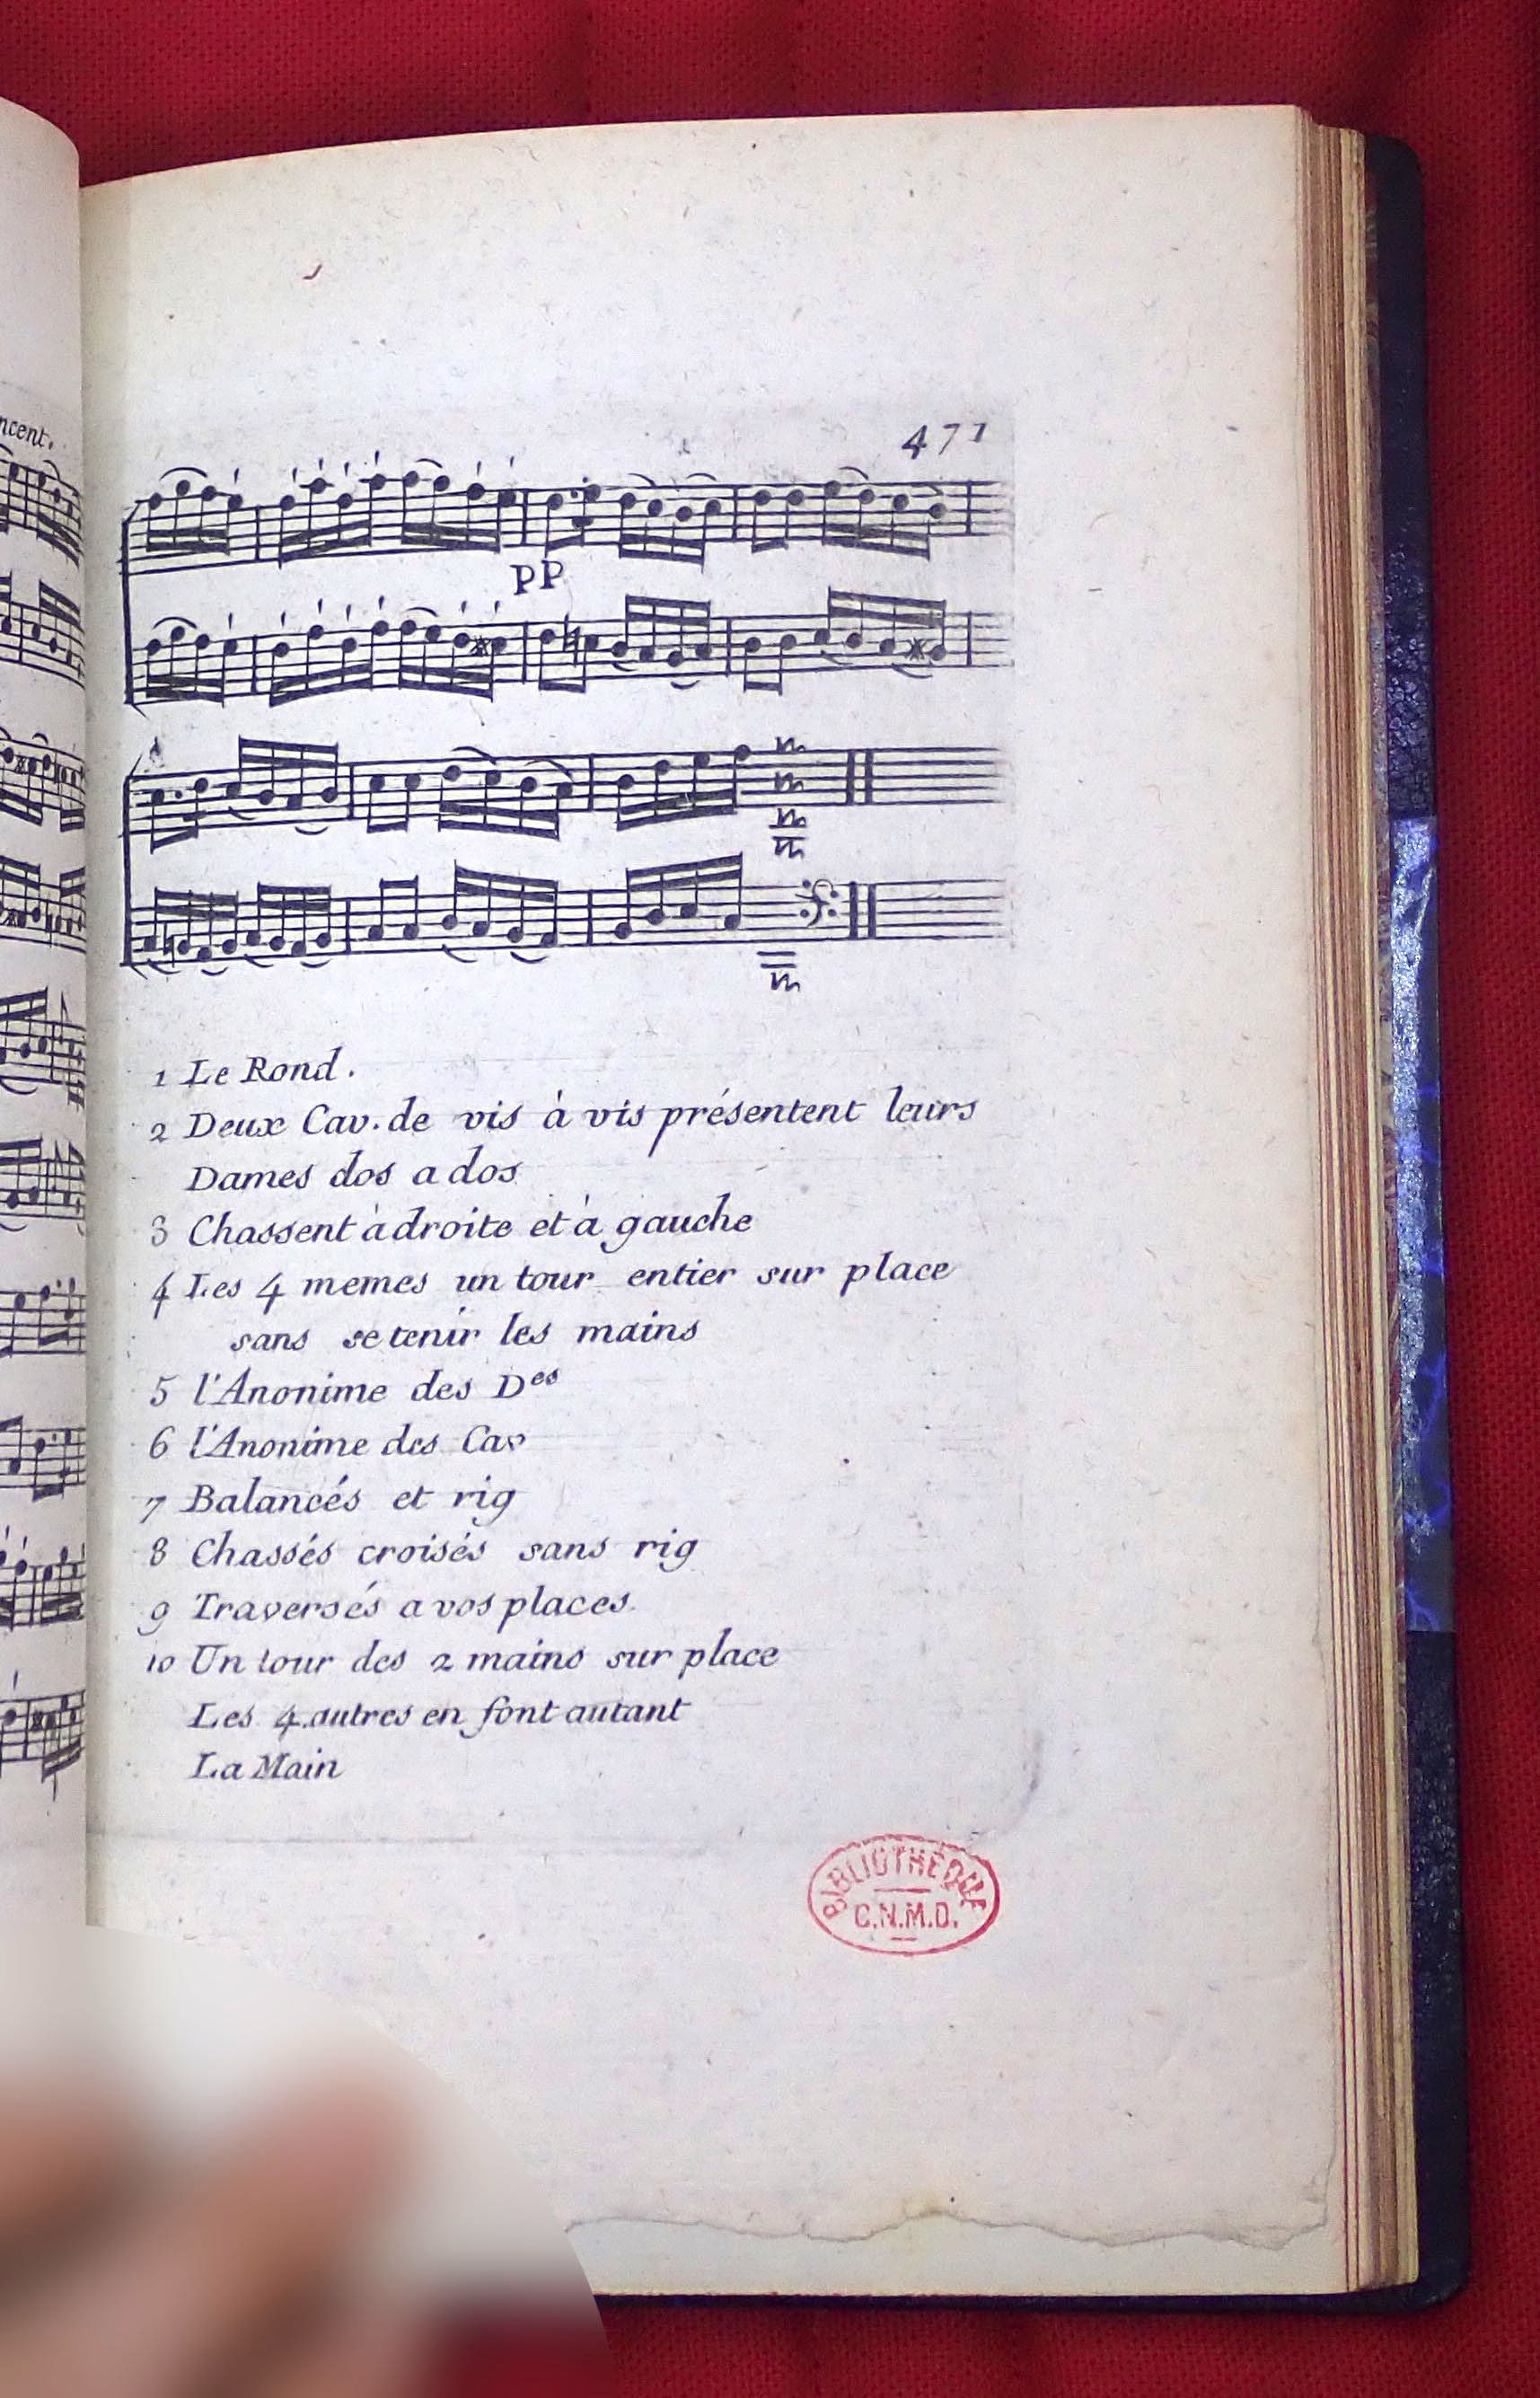 471
pp
1 Le Rond.
2 Deux Cav. de vis à vis présentent leurs
Dames dos a dos
3 Chassent à droite et à gauche
4 Les 4 memes un tour entier sur place
sans se tenir les mains
5 l'Anonime des Des
6 l'Anonime des Cav
7 Balancés et rig
8 Chassés croisés sans rig
9 Traversés a vos places.
10 Un tour des 2 mains sur place
Les 4 autres en font autant
La Main
BIBLIOTHÈQUE
C.N.M.D.